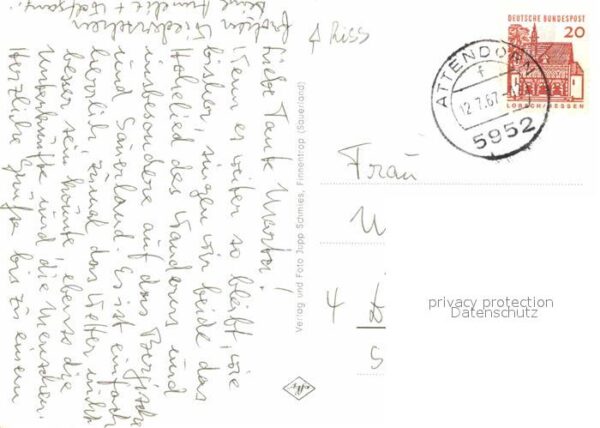 Liebe Tante Marta!
Wenn es weiter so bleibt, wie
bisher, singen wir beide das
Hohelied des Wanderns und
insbesondere auf das Bergische
und Sauerland. Es ist einfach
herrlich, zumal das Wetter nicht
besser sein könnte, ebenso die
Unterkünfte und die Menschen.
Herzliche Grüße bis zu einem
frohen Wiedersehen
Deine Annelie + Wolfgang.
Verlag und Foto Jupp Schmies, Finnentrop (Sauerland)
Riss
DEUTSCHE BUNDESPOST
20
LORSCH/HESSEN
ATTENDORN
f
12.7.67
5952
Frau
4
privacy protection
Datenschutz